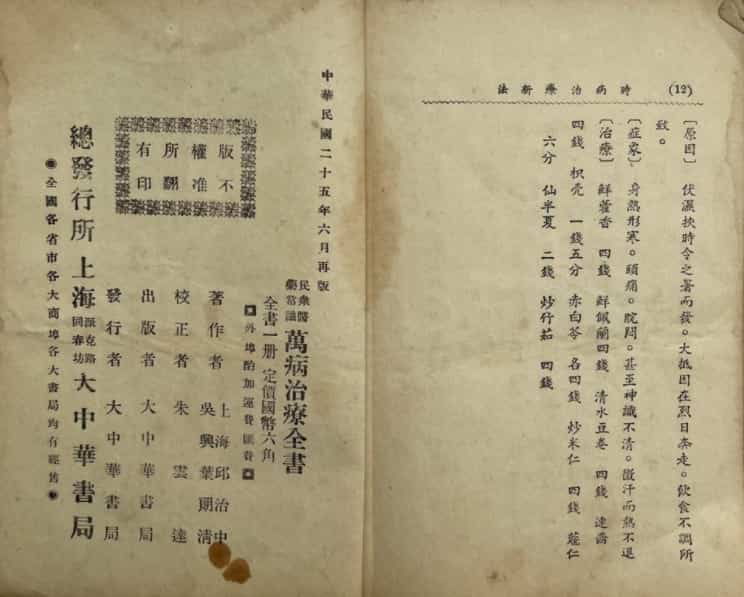 (12) 時病治療新法
〔原因〕 伏濕挾時令之暑而發。大抵因在烈日奔走。飲食不調所
致。
〔症象〕 身熱形寒。頭痛。脘悶。甚至神識不清。微汗而熱不退
〔治療〕 鮮藿香 四錢 鮮佩蘭四錢 清水豆卷 四錢 連喬
四錢 枳壳 一錢五分 赤白苓 各四錢 炒米仁 四錢 蔻仁
六分 仙半夏 二錢 炒竹茹 四錢
中華民國二十五年六月再版
不准翻印
版權所有
民衆醫
藥常識
萬病治療全書
全書一册 定價國幣六角
外埠酌加運費匯費
著作者 上海邱治中
吳興葉朗清
校正者 朱雲達
出版者 大中華書局
發行者 大中華書局
總發行所 上海 派克路 同春坊 大中華書局
全國各省市各大商埠各大書局均有經售